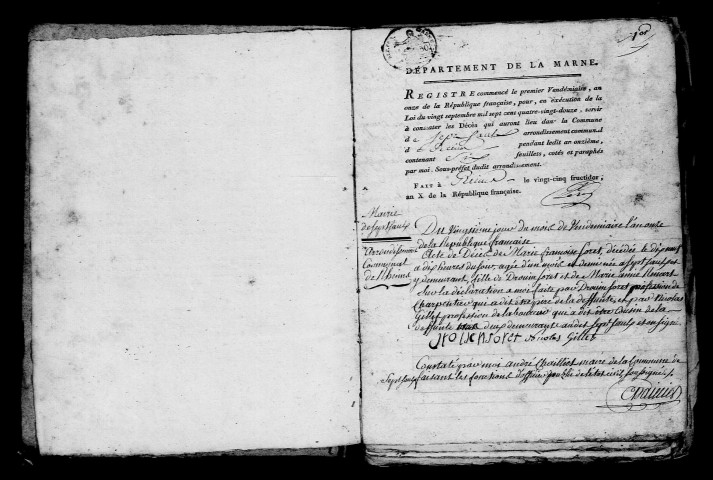 1er
DÉPARTEMENT DE LA MARNE.
REGISTRE commencé le premier Vendémiaire, an
onze de la République française, pour, en exécution de la
Loi du vingt septembre mil sept cent quatre-vingt-douze, servir
à constater les Décès qui auront lieu dans la Commune
d Sept Saulx arrondissement communal
d Reims pendant ledit an onzième,
contenant Six feuillets, cotés et paraphés
par moi Sous-préfet dudit arrondissement.
FAIT à Reims le vingt-cinq fructidor,
an X de la République française.
Mairie
de Sept Saulx
Arrondissement
Communal
de Rheims
Du vingtsime jour du mois de Vendemiaire l'an onze
de la République française
Acte de Décès de Marie françoise foret, décédée le dix neuf
à dix heures du soir, agée d'un mois et demie née a Sept Saulx
y demeurant, fille de Drouin foret et de Marie anne
Sur la déclaration a moi faite par Drouin foret profession de
Charpentier qui a dit être père de la deffunte, et par Nicolas
Gillet profession de laboureur qui a dit être Cousin de la
deffunte deux demeurants audit Sept Saulx et ont signé
foret Nicolas Gillet
Constaté par moi andré maire de la Commune de
Sept Saulx faisant les fonctions d'officier public de l'état civil soussigné